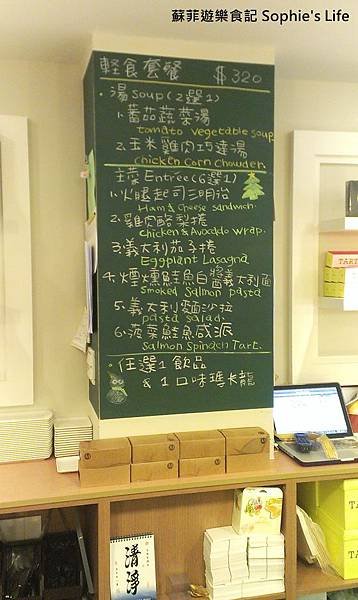 蘇菲遊樂食記 Sophie's Life
輕食套餐 $320
·湯 soup (2選1)
1.蕃茄蔬菜湯
tomato vegetable soup
2.玉米雞肉巧達湯
chicken corn chowder.
主菜 Entrée (6選1)
1.火腿起司三明治
Ham & cheese sandwich.
2.雞肉酪梨捲
chicken & Avocado wrap.
3.義大利茄子捲
Eggplant Lasagna
4.煙燻鮭魚白醬義大利面
Smoked Salmon pasta
5.義大利麵沙拉
pasta salad.
6.菠菜鮭魚咸派
Salmon Spinach Tart.
·任選1飲品
& 1口味瑪卡龍
TART
清淨
TA